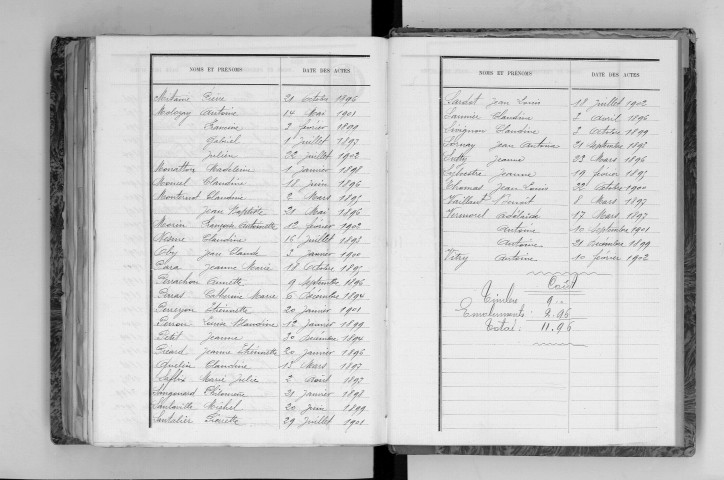 NOMS ET PRÉNOMS DATE DES ACTES
Pierre 21 Octobre 1896
Antoine 14 Mai 1901
2 février 1899
Gabriel 1 Juillet 1897
Julien 22 Juillet 1902
Monatton Madeleine 1 Janvier 1898
Monnel Claudine 18 Juin 1896
Monternot Claudine 2 Mars 1897
Jean Baptiste 21 Mai 1896
Morin Antoinette 12 février 1902
Nesme Claudine 16 Juillet 1897
Oby Jean Claude 2 Janvier 1900
Para Jeanne Marie 18 Octobre 1897
Perrachon Annette 9 Septembre 1896
Perras Catherine Marie 6 Décembre 1894
Perrezon Etiennette 20 Janvier 1901
Perron Claudine 12 Janvier 1899
Petit Jeanne 1894
Picard Jeanne Etiennette 20 Janvier 1896
Claudine 13 Mars 1897
Marie Julie 2 Août 1897
Sangouard Philomène 21 Janvier 1898
Michel 20 Juin 1899
29 Juillet 1901
NOMS ET PRÉNOMS DATE DES ACTES
Sardet Jean Louis 18 Juillet 1902
Saunier Claudine 2 Avril 1896
Sivignon Claudine 2 Octobre 1899
Sornay Jean Antoine 21 Septembre 1898
Jeanne 23 Mars 1896
Sylvestre Jeanne 19 février 1897
Thomas Jean Louis 22 Octobre 1900
Vaillant Benoit 8 Mars 1897
Vermorel Adélaïde 17 Mars 1897
Antoine 10 Septembre 1901
Antoine 21 Décembre 1899
Vitry Antoine 10 février 1902
Coût
Timbre 9 "
Emoluments: 2.96
Total: 11.96